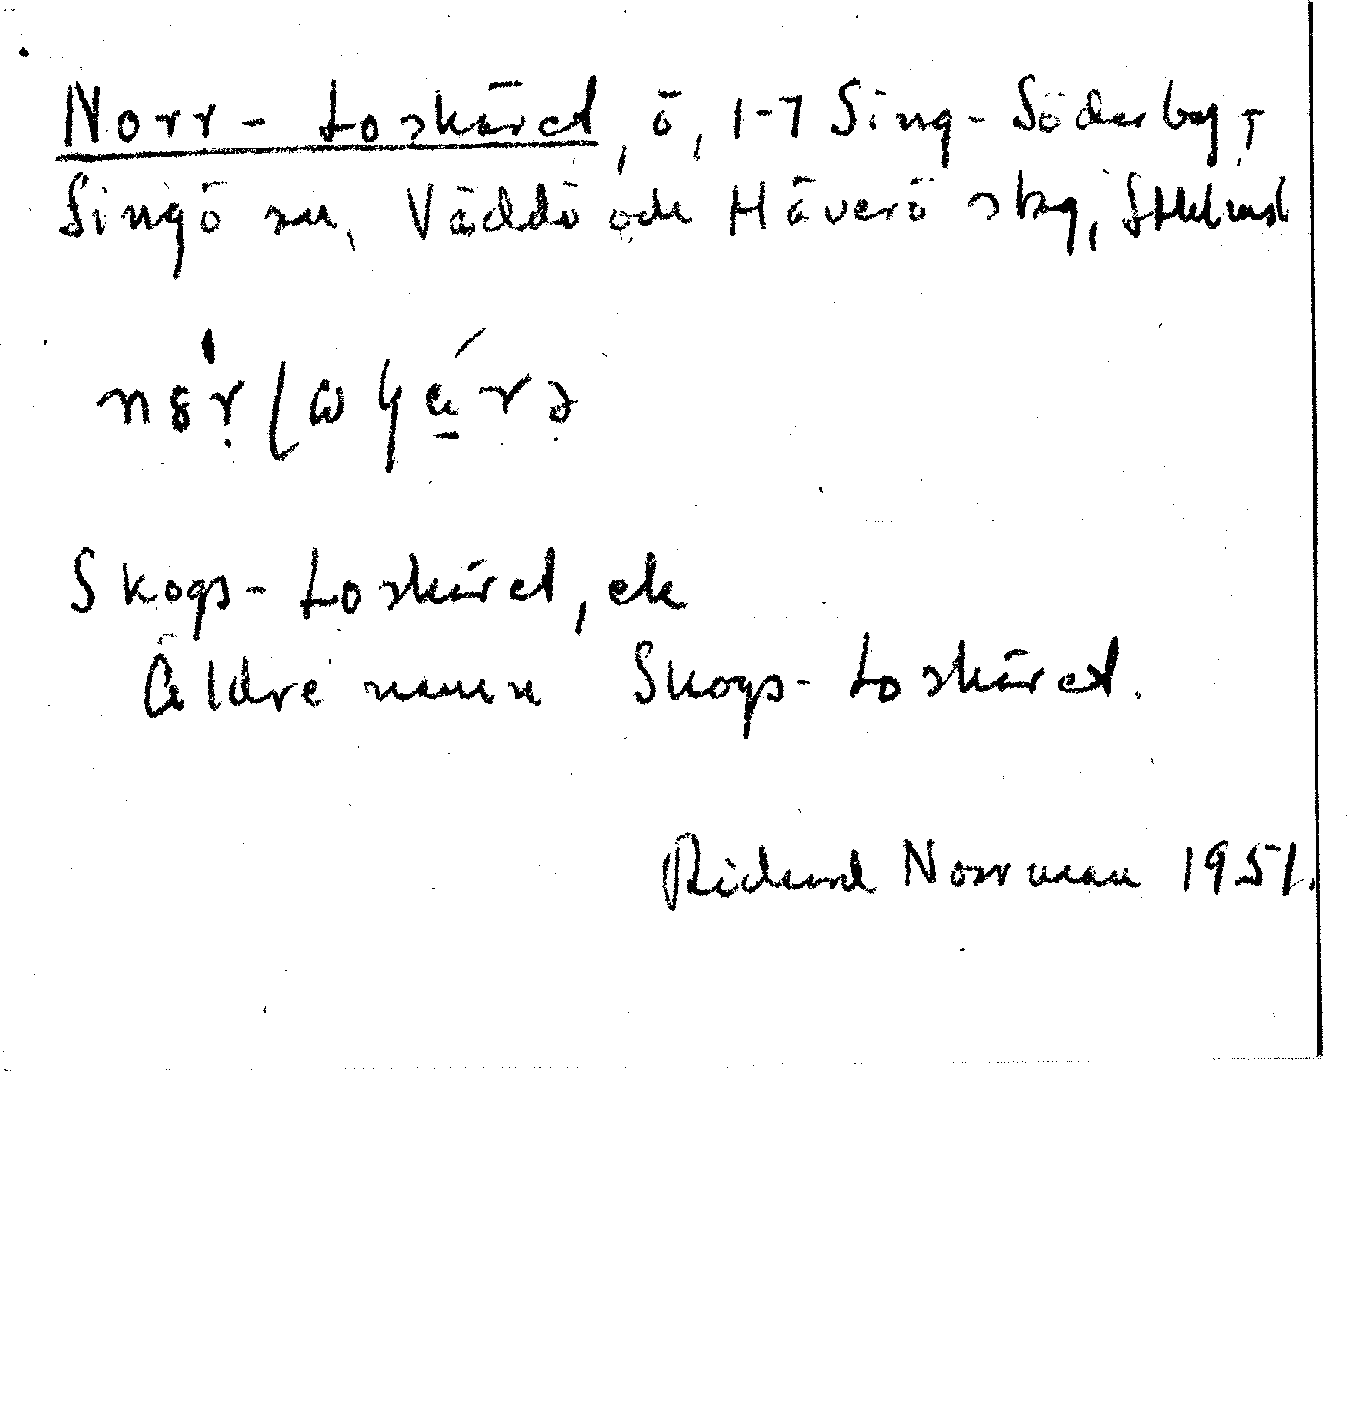 Norr-Loskäret, ö, 1-7 Sing-Söderby,
Singö sn, Väddö och Häverö skg, Sthlms l
Skogs-Loskäret, ek
Äldre namn Skogs-Loskäret.
Richard Norrman 1951.